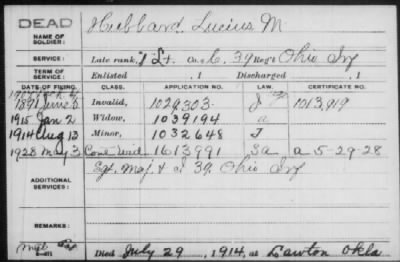 DEAD
NAME OF SOLDIER: Hubbard, Lucius M
SERVICE: Late rank, 1 Lt. Co. C, 39 Reg't Ohio Inf
TERM OF SERVICE: Enlisted , 1 Discharged , 1
DATE OF FILING. CLASS. APPLICATION NO. LAW. CERTIFICATE NO.
1891 June 5 Invalid, 1029303 J 1013,919
1915 Jan 2 Widow, 1039194 a
1914 Aug 13 Minor, 1032648 J
1928 May 3 Con Wid 1613991 3a a 5-29-28
ADDITIONAL SERVICES: Sgt. Maj. & I 39 Ohio Inf
REMARKS:
Died July 29, 1914, at Lawton Okla